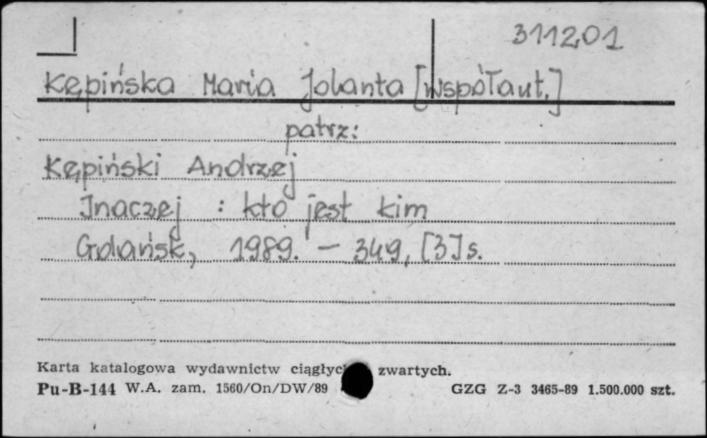 311201
Kępińska Maria Jolanta [współaut.]
patrz:
Kępiński Andrzej
Inaczej : kto jest kim
Gdańsk, 1989. – 349, [3] s.
Karta katalogowa wydawnictw ciągłyc zwartych.
Pu-B-144 W.A. zam. 1560/On/DW/89 GZG Z-3 3465-89 1.500.000 szt.